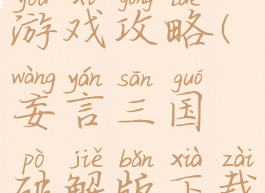 yóu xì gōng lüè
游戏攻略(
wàng yán sān guó
妄言三国
pò jiě bǎn xià zài
破解版下载